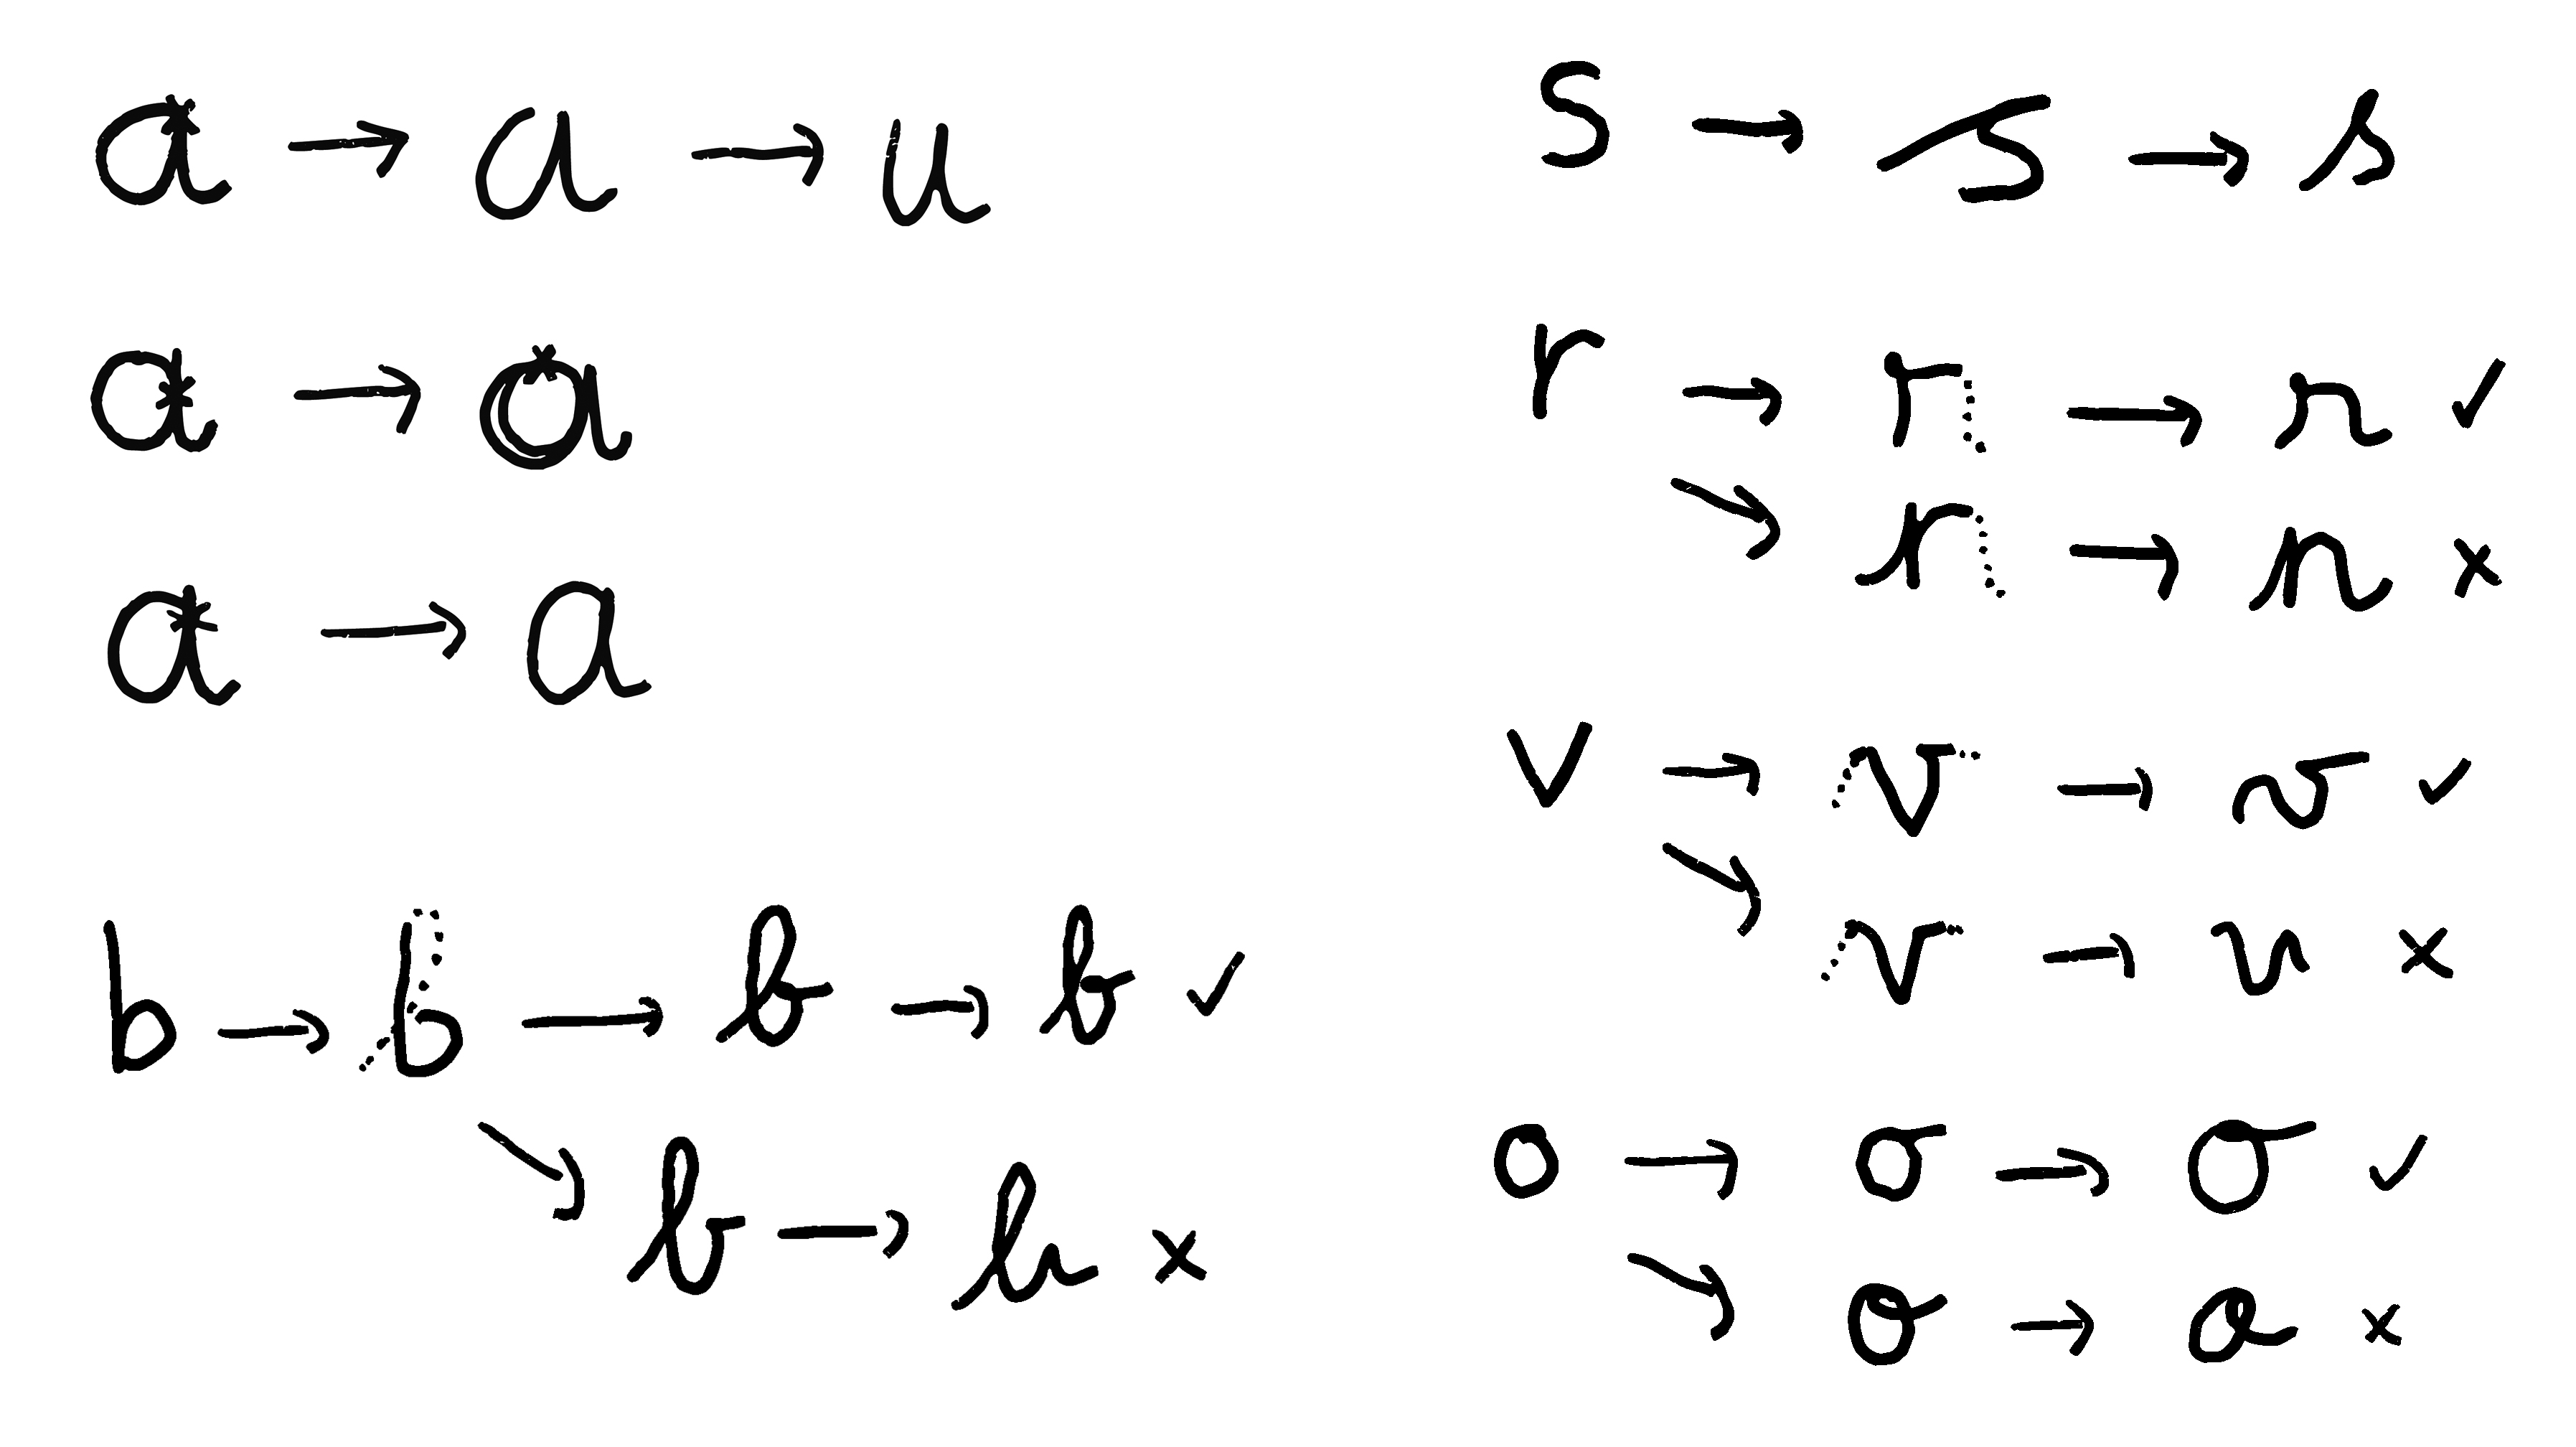 a → a → u
a → a
a → a
b → b → b → b ✓
↘ b → b ×
s → s → s
r → r → r ✓
↘ r → n ×
v → v → v ✓
↘ v → u ×
o → o → o ✓
↘ o → a ×